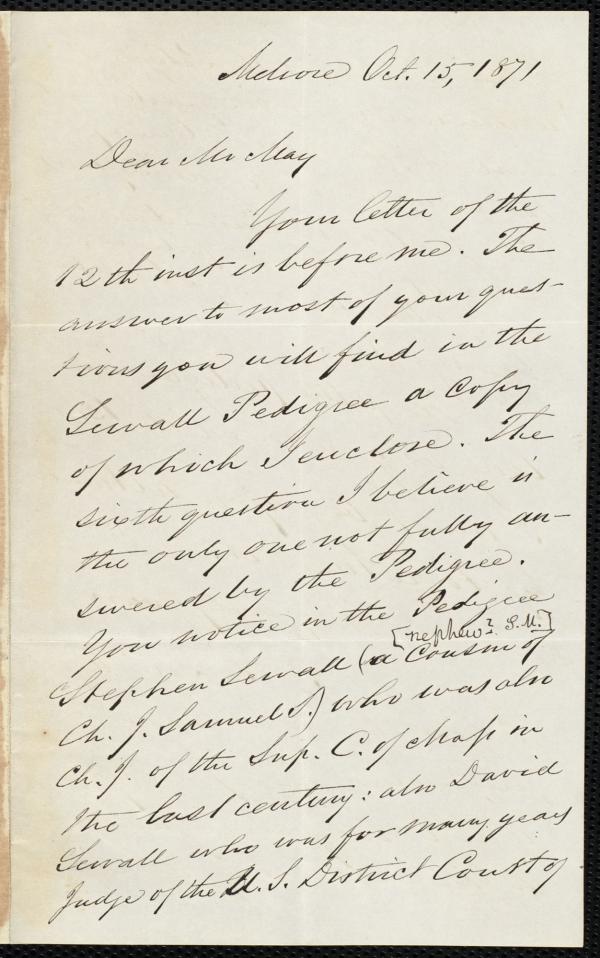 Melrose Oct. 15, 1871
Dear Mr May
Your letter of the
12th inst is before me. The
answer to most of your ques-
tions you will find in the
Sewall Pedigree a copy
of which I enclose. The
sixth question I believe is
the only one not fully an-
swered by the Pedigree.
You notice in the Pedigree
[nephew? S.M.]
Stephen Sewall (a cousin of
Ch. J. Samuel S.) who was also
Ch. J. of the Sup. C. of Mass in
the last century: also David
Sewall who was for many years
Judge of the U.S. District Court of